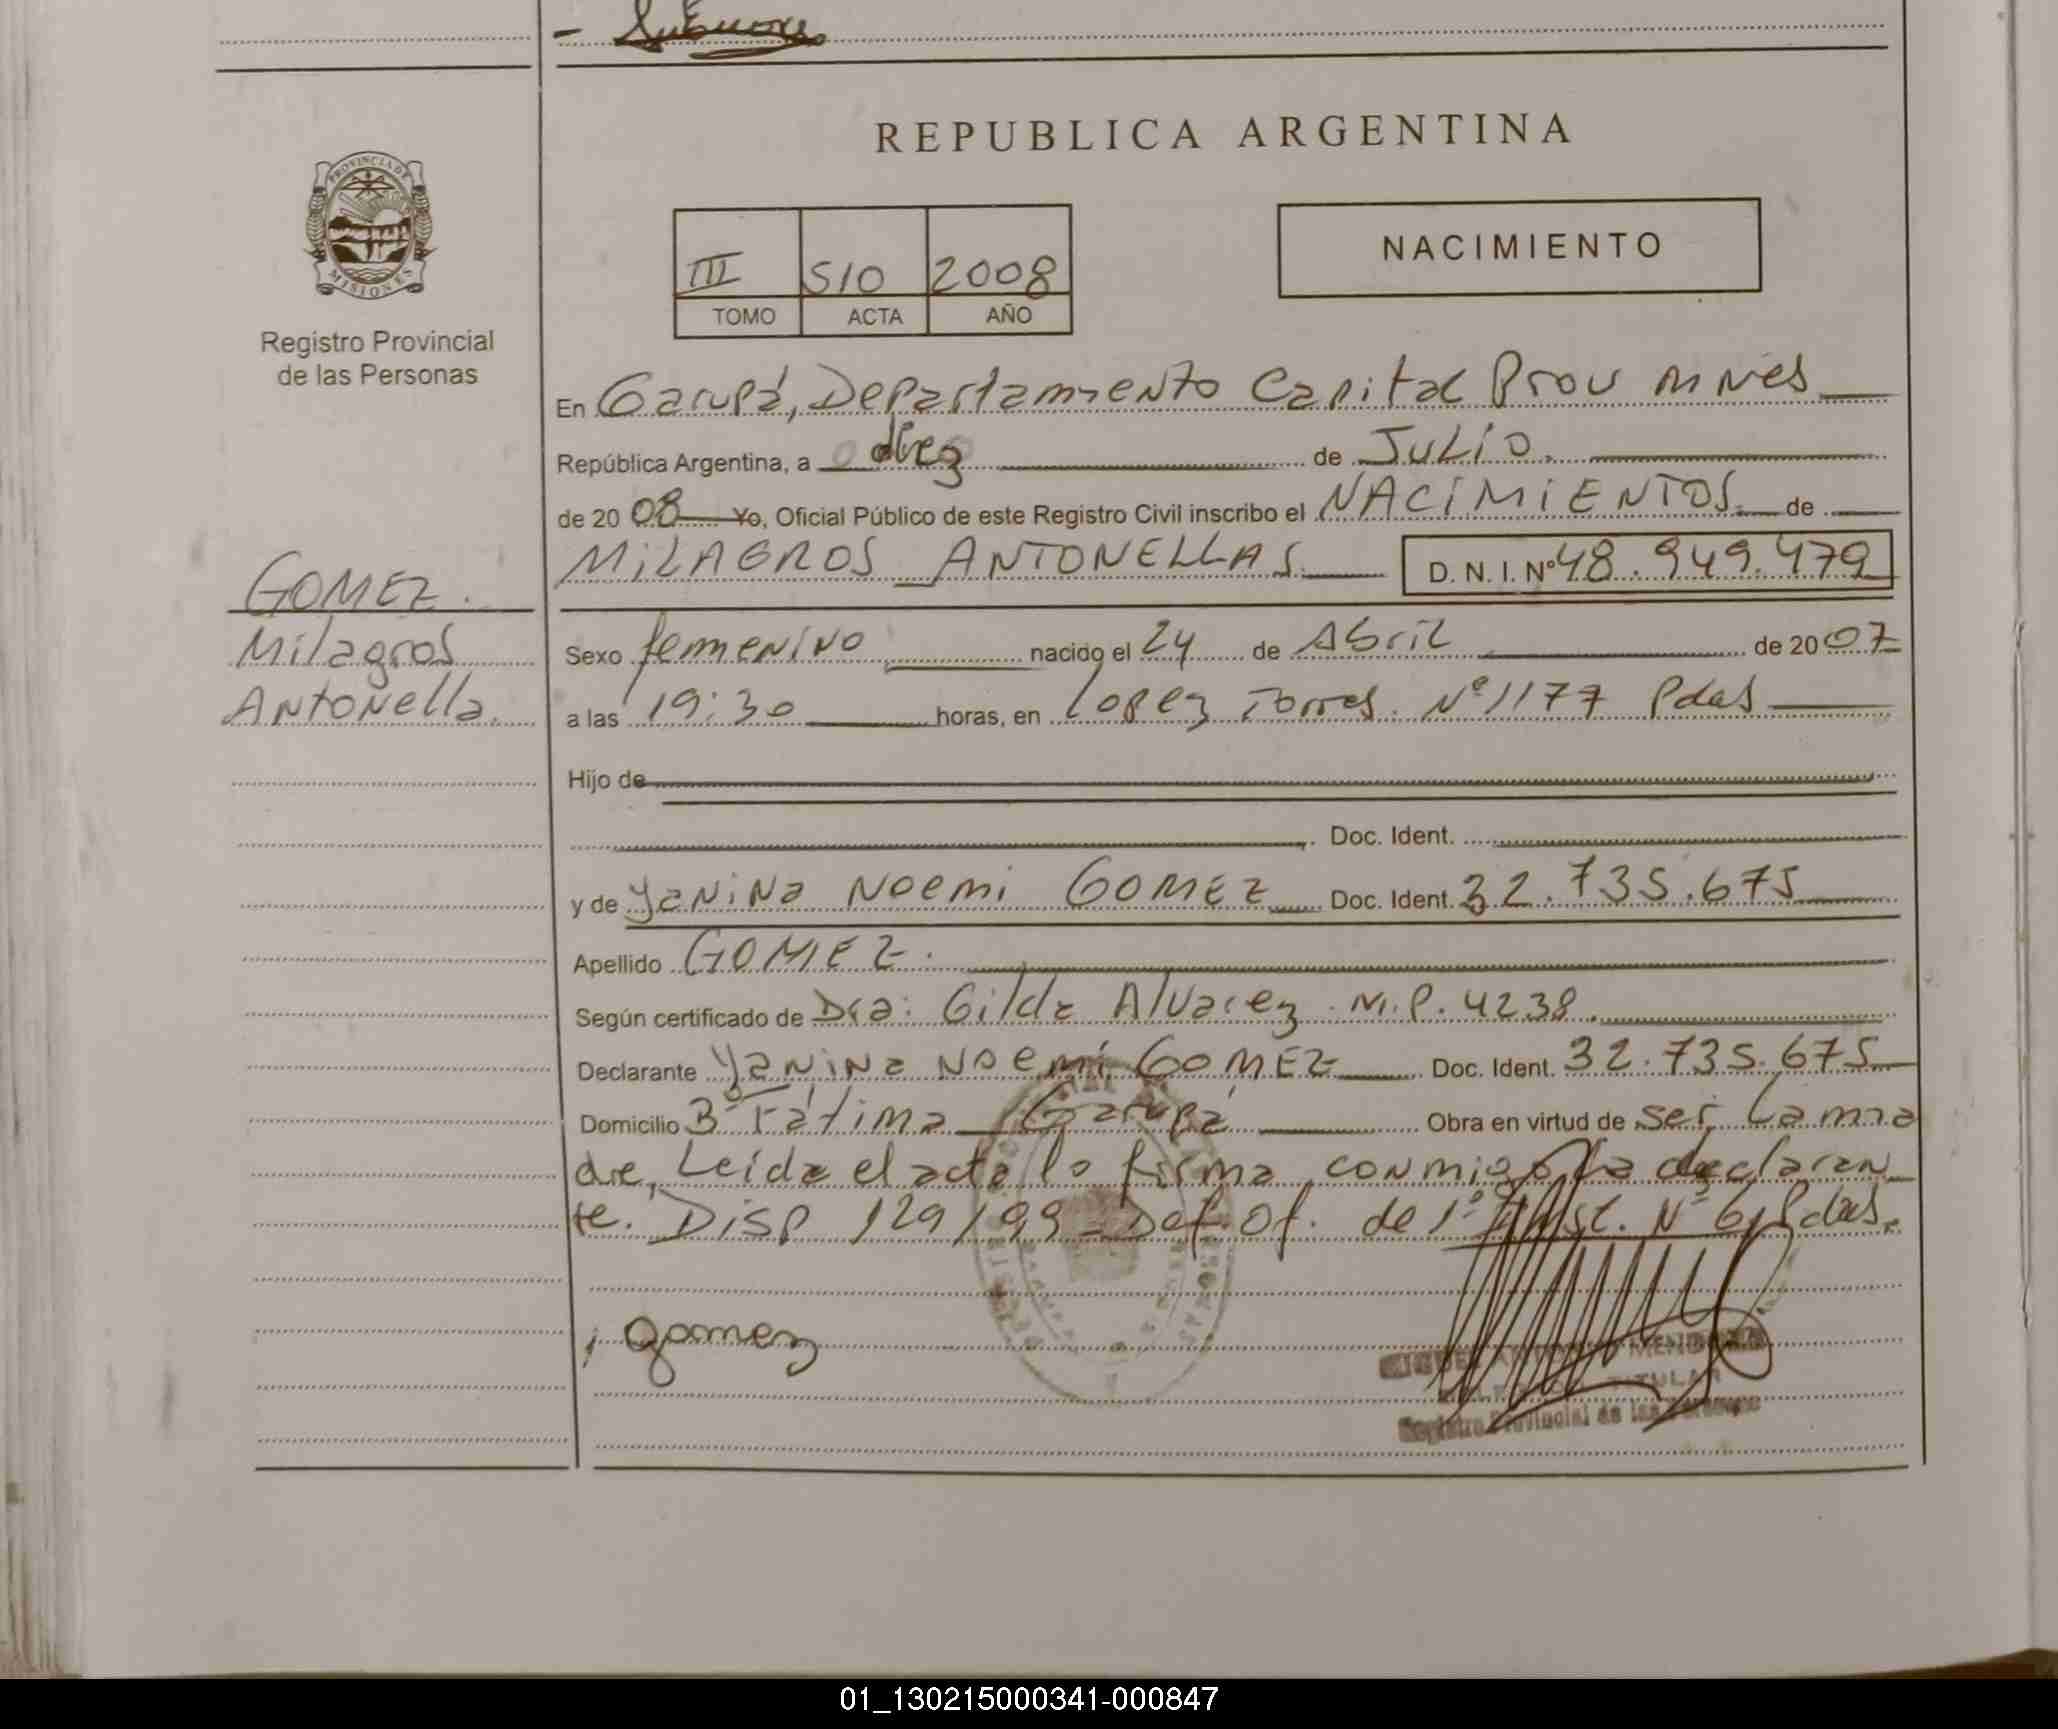 REPUBLICA ARGENTINA
PROVINCIA DE MISIONES
Registro Provincial
de las Personas
III 510 2008
TOMO ACTA AÑO
NACIMIENTO
En Garupá, Departamiento Capital Prov Mnes
República Argentina, a diez de JULIO.
de 2008 Yo, Oficial Público de este Registro Civil inscribo el NACIMIENTOS. de
MILAGROS ANTONELLAS. D. N. I. Nº 48.949.479
GOMEZ.
Milagros
Antonella.
Sexo femenino nacido el 24 de Abril de 2007
a las 19:30 horas, en Lopez Torres. Nº 1177 Pdas
Hijo de
Doc. Ident.
y de Yanina Noemi GOMEZ Doc. Ident. 32.735.675
Apellido GOMEZ.
Según certificado de Dra: Gilda Alvarez M.P. 4238.
Declarante Yanina Noemi GOMEZ Doc. Ident. 32.735.675
Domicilio Bº Fátima Garupá Obra en virtud de ser la ma
dre, Leida el acta lo firma conmigo la declaran
te. Disp 129/99 - Def. Of. de 1º Inst. Nº 6, Pdas.
gomez
TITULAR
Registro Provincial de las Personas
01_130215000341-000847